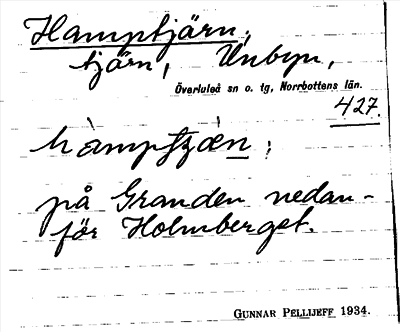 Hamptjärn,
tjärn, Unbyn,
Överluleå sn o. tg, Norrbottens län.
427.
på Granden nedan-
för Holmberget.
GUNNAR PELLIJEFF 1934.